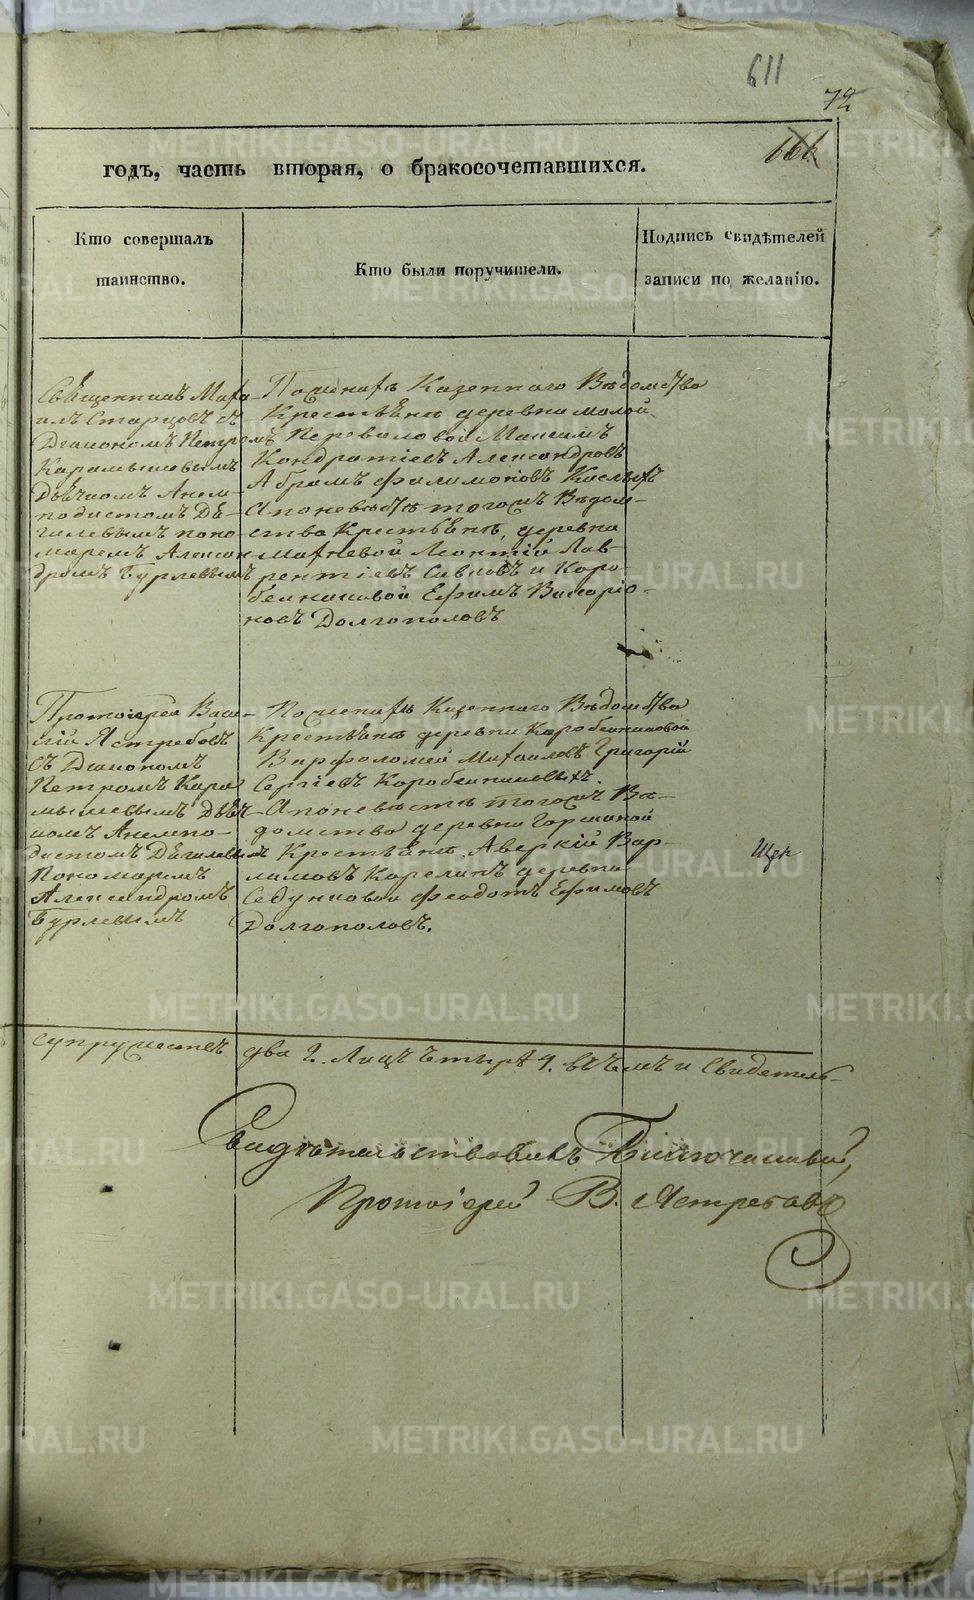 611
72
666
годъ, часть вторая, о бракосочетавшихся.
Кто совершалъ
таинство.
Кто были поручители.
Подпись свидѣтелей
записи по желанію.
Священникъ Миха-
илъ Старцовъ съ
Діакономъ Петромъ
Карамышевымъ
Дьячкомъ Анем-
подистомъ Дѣ-
гилевымъ поно-
маремъ Алексан-
дромъ Бурлевымъ
По женихѣ Казеннаго Вѣдомства
Крестьяне деревни малой
Переваловой Максимъ
Кондратіевъ Александровъ
Абрамъ Филимоновъ
А по невѣстѣ тогожъ Вѣдом-
ства Крестьяне, деревни
Махневой Леонтій Лав-
рентіевъ и Коро-
бейниковой Ефимъ Виссаріо-
новъ Долгополовъ
Протоіерей Васи-
лій Ястребовъ
съ Діакономъ
Петромъ Кара-
мышевымъ Дьяч-
комъ Анемпо-
дистомъ Дѣгилевымъ
Пономаремъ
Александромъ
Бурлевымъ
По женихѣ Казеннаго Вѣдомства
Крестьяне деревни Коробейниковой
Варфоломей Михаиловъ Григорій
Сергіевъ Коробейниковы.
А по невѣстѣ тогожъ Вѣ-
домства деревни
Крестьяне Аверкій Вар-
ламовъ Карелинъ деревни
Седунковой Феодотъ Ефимовъ
Долгополовъ.
супружествъ два 2. Лицъ четыре 4. въ чемъ и Свидетель-
Свидѣтельствовалъ Благочинный,
Протоіерей В. Ястребовъ